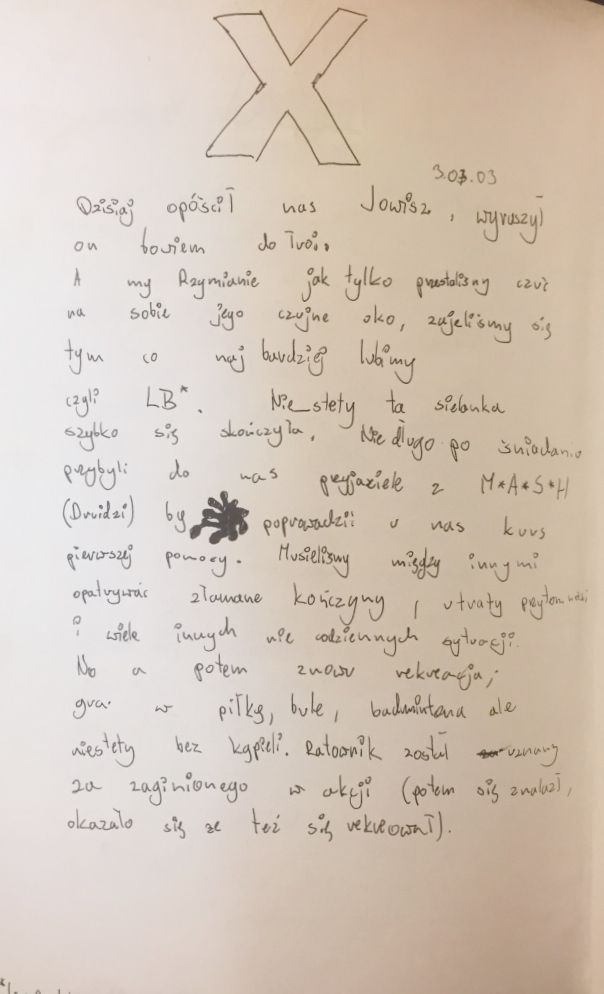 X
3.03.03
Dzisiaj opóścił nas Jowisz, wyruszył
on bowiem do Troi.
A my Rzymianie jak tylko przestaliśmy czuć
na sobie jego czujne oko, zajeliśmy się
tym co naj bardziej lubimy
czyli LB*. Nie_stety ta sielanka
szybko się skończyła. Nie długo po śniadaniu
przybyli do nas przyjaciele z M*A*S*H
(Druidzi) by poprowadzić u nas kurs
pierwszej pomocy. Musieliśmy między innymi
opatrywać złamane kończyny, utraty przytomności
i wiele innych nie codziennych sytuacji.
No a potem znowu rekreacja,
gra w piłkę, bule, badmintona ale
niestety bez kąpieli. Ratownik został uznany
za zaginionego w akcji (potem się znalazł,
okazało się ze też się rekreował).